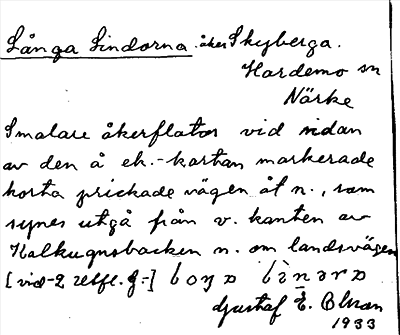 Långa Lindorna. åker Skyberga.
Hardemo sn
Närke
Smalare åkerflator vid sidan
av den å ek.-kartan markerade
korta prickade vägen åt n., som
synes utgå från v. kanten av
Kalkugnsbacken n. om landsvägen
[vid-2 retfl. g.-]
Gustaf E. Olsson
1933